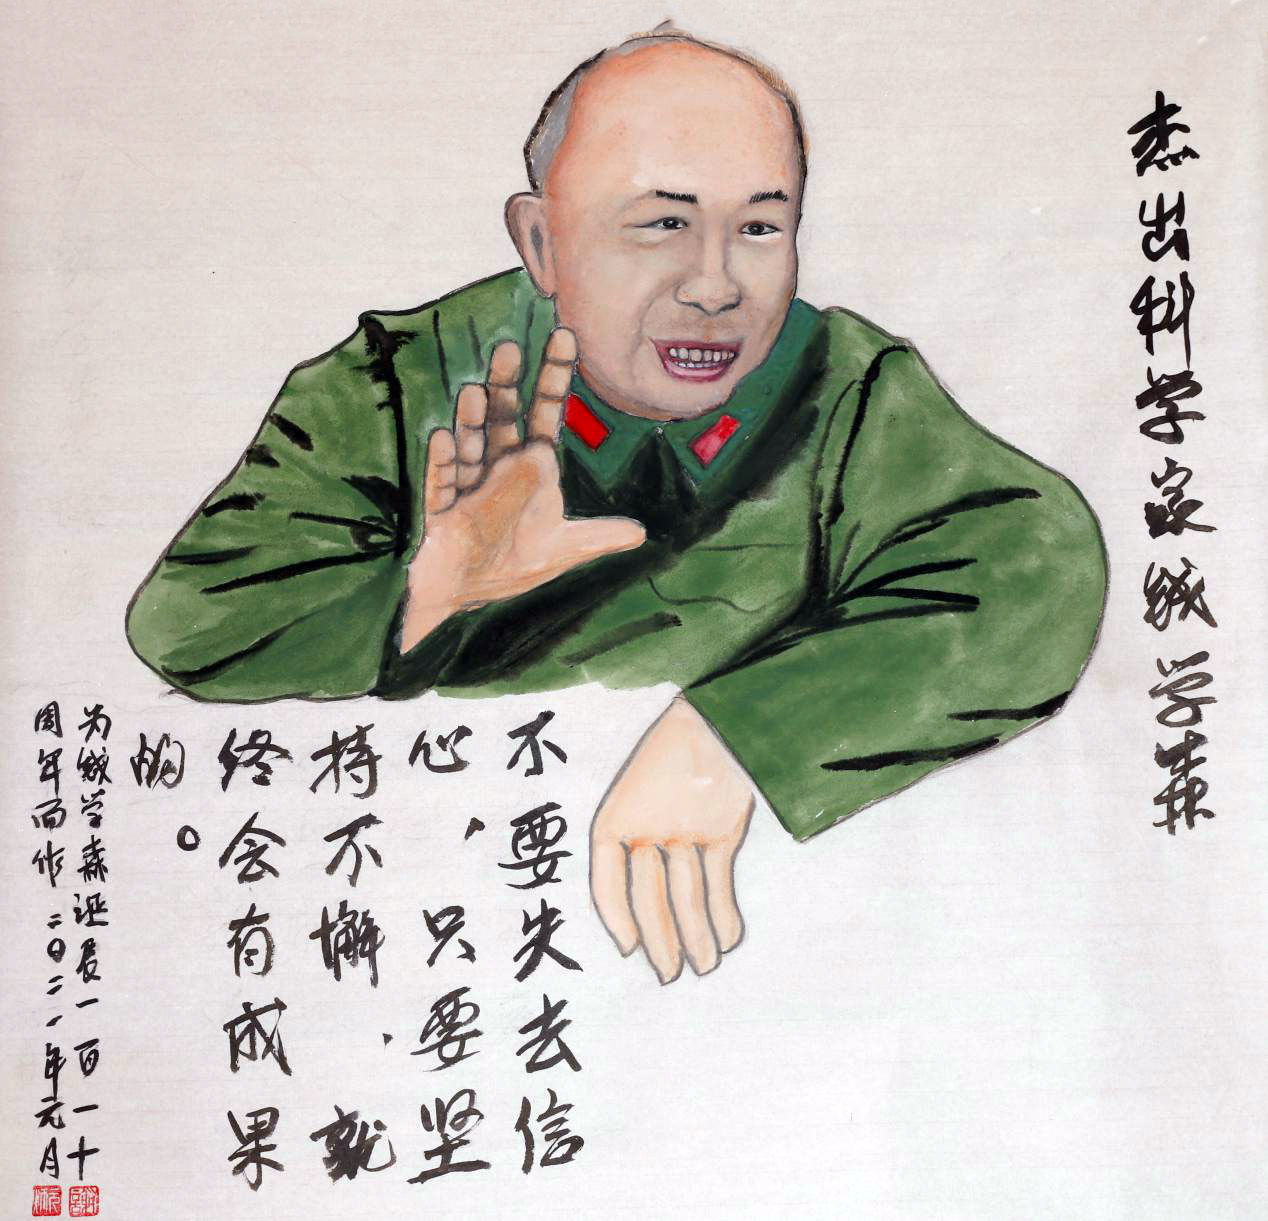 杰出科学家钱学森
不要失去信
心，只要坚
持不懈，就
终会有成果
的。
为钱学森诞辰一百一十
周年而作 二〇二一年元月